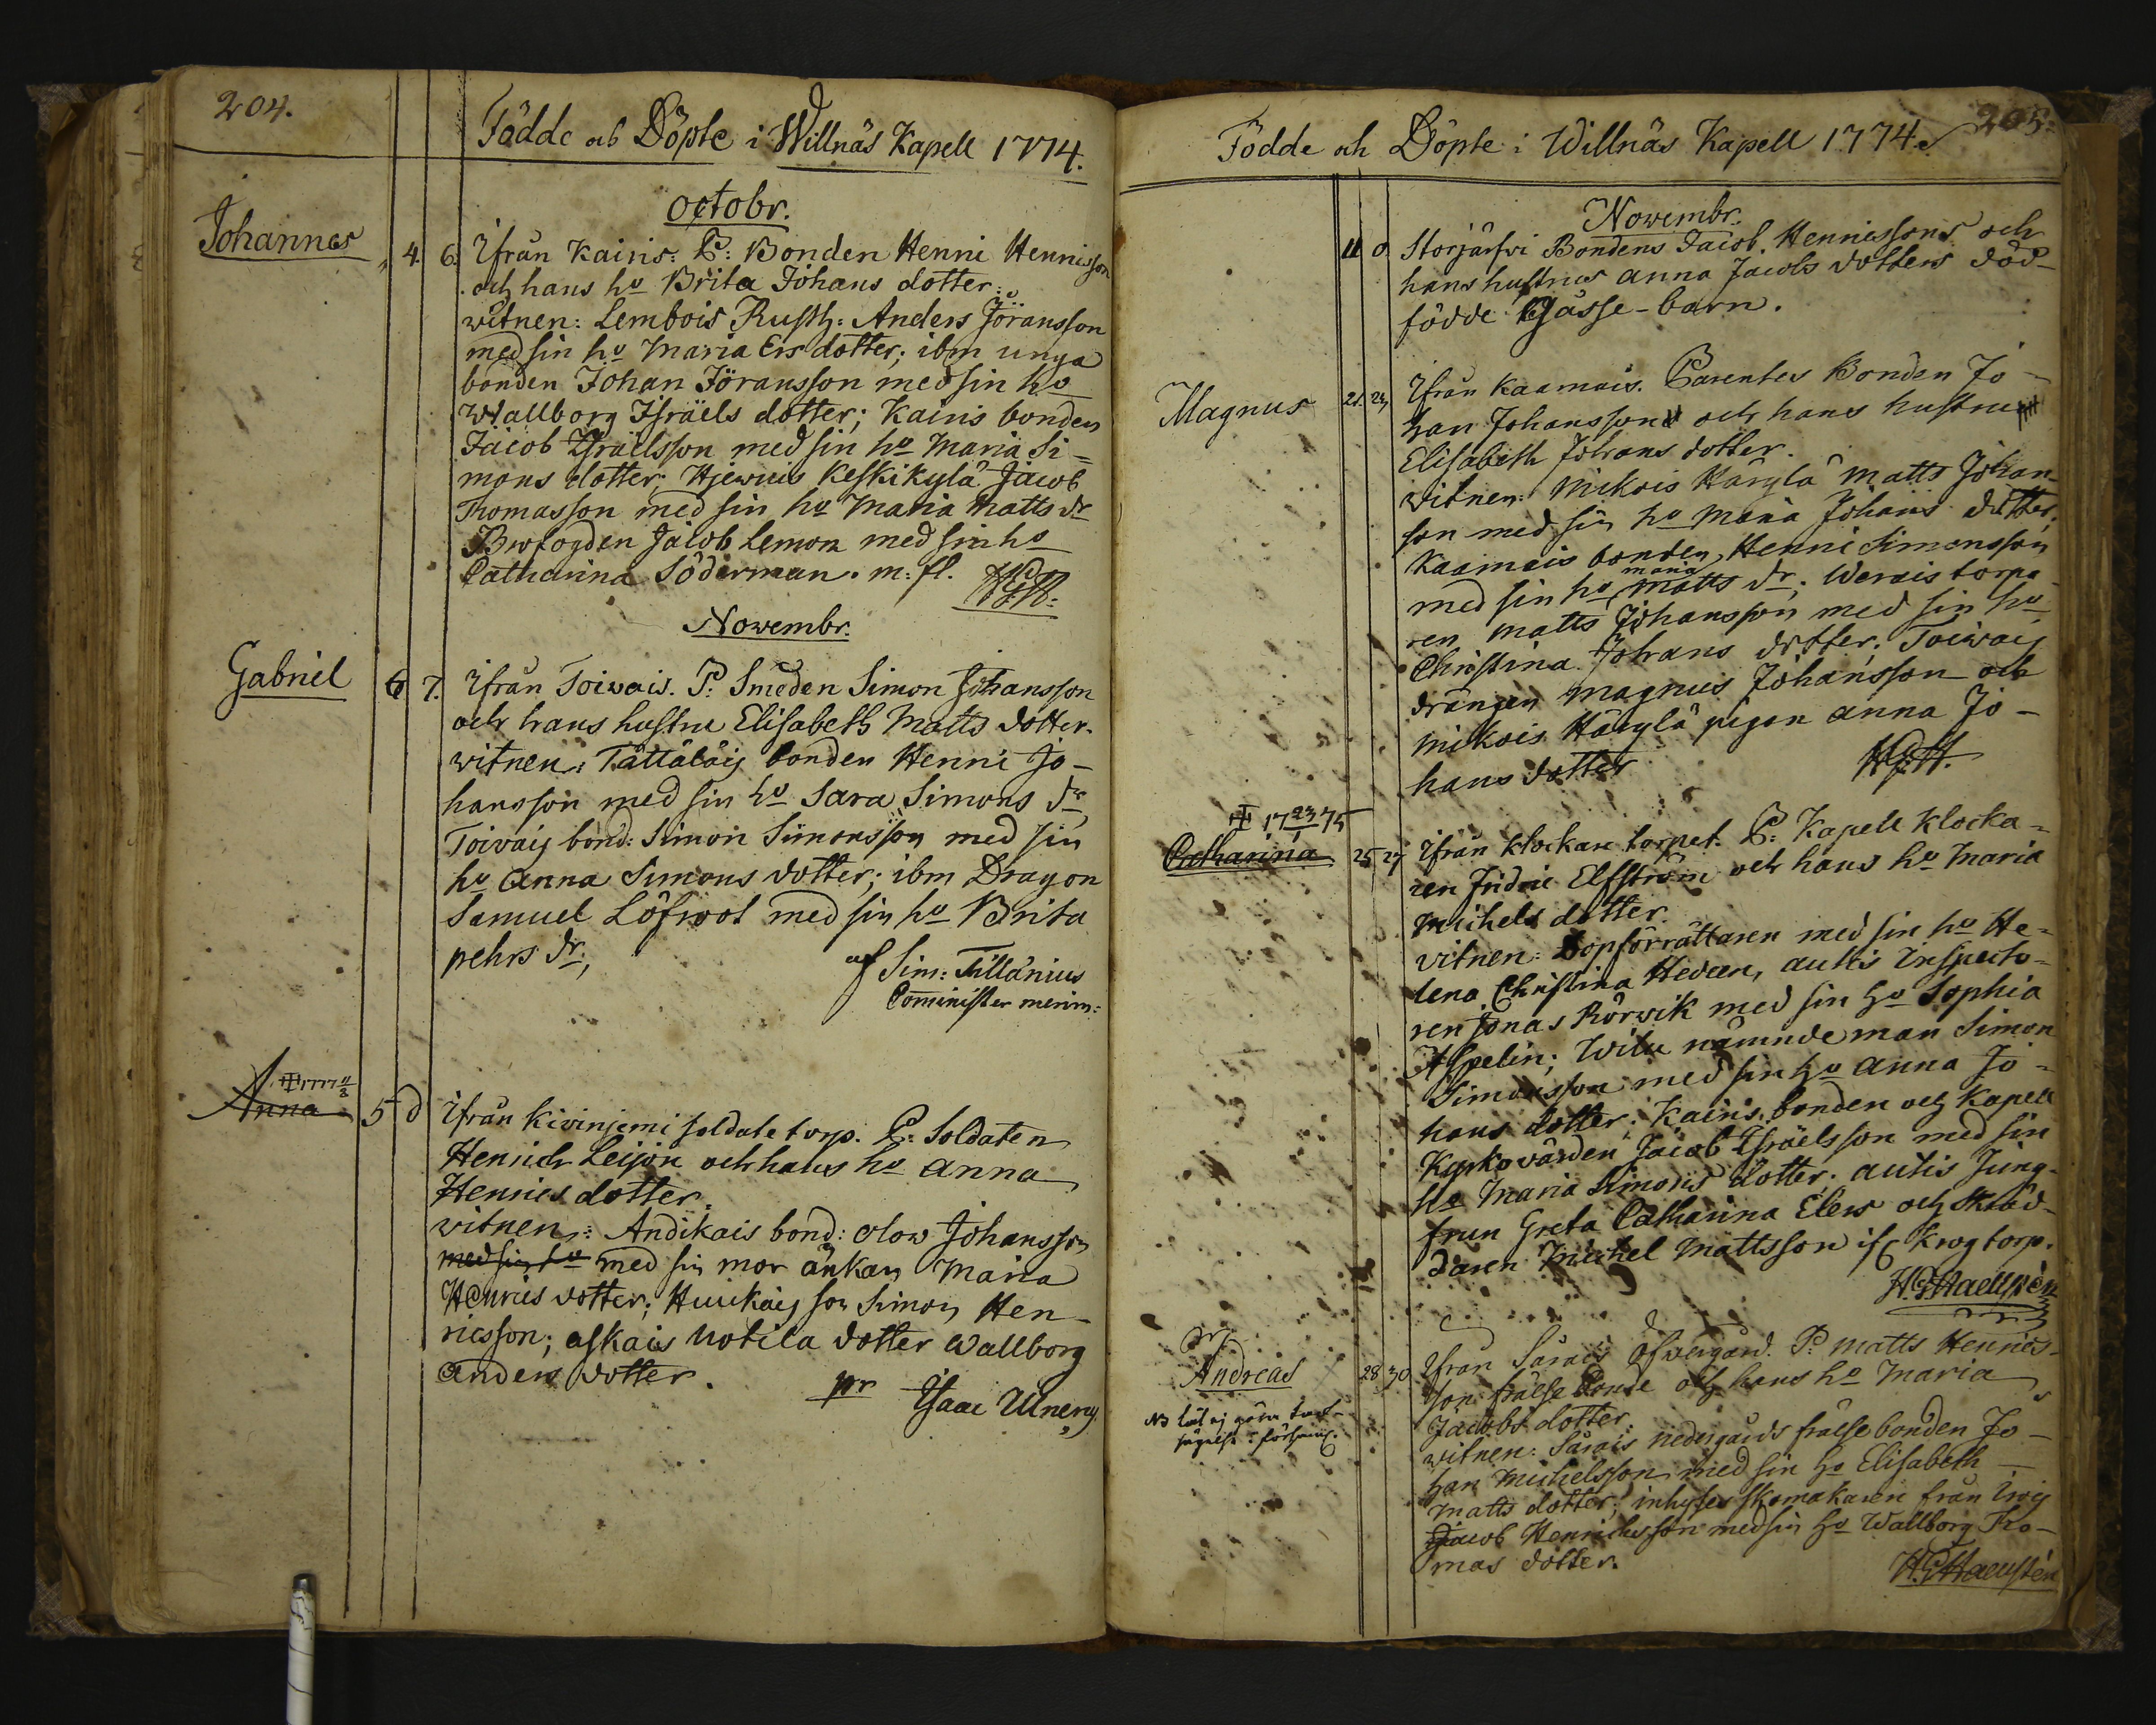 204.
Födde och Döpte i Willnäs Kapell 1774.
octobr.
Johannes 4. 6. Ifrån Kairis: P: Bonden Henni Hennisson
och hans ho Brita Johans dotter.
witnen: Lembois Rusth: Anders Jöransson
med sin ho Maria Ers dotter; ibm unga
bonden Johan Jöransson med sin ho
Wallborg Israels dotter; Kairis bonden
Jacob Israelsson med sin ho Maria Si=
mons dotter; Keskikylä Jacob
Thomasson med sin ho Maria Matts dr
Jacob Lemon med sin ho
Catharina Söderman. m: fl.
Novembr.
Gabriel 6 7. Ifrån Toivais. P: Smeden Simon Johansson
och hans hustru Elisabeth Matts dotter.
witnen: bonden Henni Jo-
hansson med sin ho Sara Simons dr
Toivais bond: Simon Simonsson med sin
ho Anna Simons dotter; ibm Dragon
Samuel Löfroot med sin ho Brita
pehrs dr;
af Sim: Tillänius
Cominister merim:
Anna 5 d Ifrån Kivinjemi soldate torp. P: Soldaten
Henrich Leijon och hans ho Anna
Henrics dotter.
witnen: Andikais bond: Olow Johansson
med sin ho med sin mor änkan Maria
Henrics dotter; son Simon Hen-
ricsson; askais Uotila dotter Wallborg
Anders dotter.
pr Isaac
205.
Födde och Döpte i Willnäs Kapell 1774.
Novembr.
11 0. Storjärfvi Bondens Jacob Hennissons och
hans hustrus Anna Jacobs dotters död-
födde Gåsse-barn.
Magnus 21. 24 Ifrån Kaamais. Parentes Bonden Jo-
han Johansson och hans hustru
Elisabeth Johans dotter.
witnen: Mikois Härylä Matts Johan-
son med sin ho Maria Johans dotter;
Kaamais bonden, Henni Simonsson
med sin ho maria Matts dr; torpa-
ren Matts Johansson med sin ho
Christina Johans dotter; Toivais
drängen Magnus Johansson och
Mikois Härylä pigan Anna Jo-
hans dotter
Catharina 25 27 Ifrån klockare torpet. P: Kapell klocka=
ren Fridric Elfström och hans ho Maria
Michels dotter.
vitnen: Dopförrättaren med sin ho He=
lena Christina Hedeen, autis Inspecto=
ren Jonas Rörwik med sin ho Sophia
Aspelin; nämndeman Simon
Simonsson med sin ho Anna Jo=
hans dotter; Kairis bonden och Kapell
Kyrkovärden Jacob Israelsson med sin
ho Maria Simons dotter; autis Jung-
frun Greta Catharina Elers och Skräd-
daren Michel Mattsson krogtorp.
H.G. Haellstén
Andreas 28 30 Ifrån Särais öfvergård. P: Matts Henrics-
son frälse bonde och hans ho Maria
Jacobs dotter.
witnen: Särais nedergårds frälse bonden Jo-
han Michelsson med sin ho Elisabeth
Matts dotter; inhyses skomakaren från
Jacob Henrichsson med sin ho Wallborg Tho-
mas dotter.
H.G. Haellstén